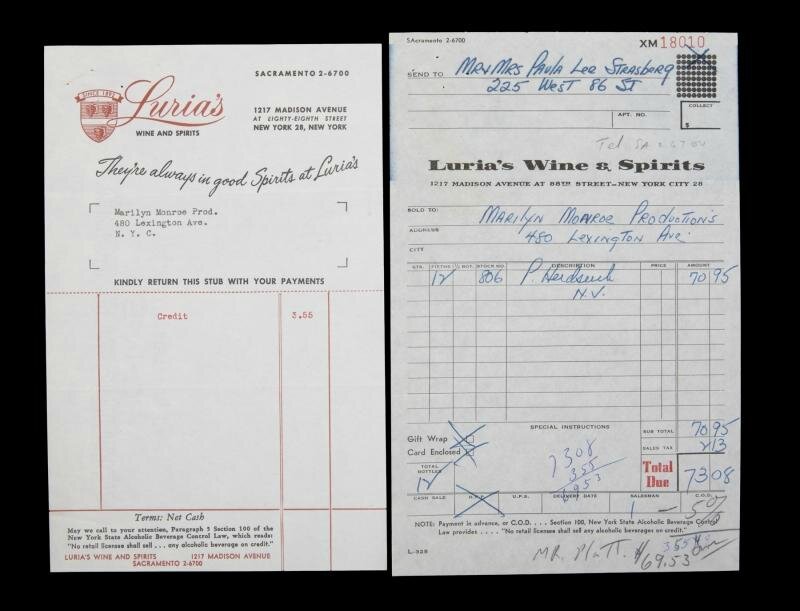 SACRAMENTO 2-6700
SINCE 1892
Luria's
WINE AND SPIRITS
1217 MADISON AVENUE
AT EIGHTY-EIGHTH STREET
NEW YORK 28, NEW YORK
They're always in good Spirits at Luria's
Marilyn Monroe Prod.
480 Lexington Ave.
N. Y. C.
KINDLY RETURN THIS STUB WITH YOUR PAYMENTS
Credit 3.55
Terms: Net Cash
May we call to your attention, Paragraph 5 Section 100 of the
New York State Alcoholic Beverage Control Law, which reads:
"No retail licensee shall sell . . . any alcoholic beverage on credit."
LURIA'S WINE AND SPIRITS 1217 MADISON AVENUE
SACRAMENTO 2-6700
SAcramento 2-6700
XM 18010
SEND TO Mr & Mrs Paula Lee Strasberg
225 West 86 St
COLLECT
APT. NO.
$
Tel. SA
Luria's Wine & Spirits
1217 MADISON AVENUE AT 88TH STREET—NEW YORK CITY 28
SOLD TO: Marilyn Monroe Productions
ADDRESS 480 Lexington Ave.
CITY
QTS. FIFTHS BOT. STOCK NO. DESCRIPTION PRICE AMOUNT
12 806 P. 70 95
N.V.
SPECIAL INSTRUCTIONS
SUB TOTAL 70 95
Gift Wrap
SALES TAX 2 13
Card Enclosed
7308
355
6953
TOTAL BOTTLES
12
Total Due 73 08
CASH SALE U.P.S. DELIVERY DATE SALESMAN C.O.D.
1
NOTE: Payment in advance, or C.O.D. . . . Section 100, New York State Alcoholic Beverage Control
Law provides . . . . "No retail licensee shall sell . . . any alcoholic beverage on credit."
L-328
Mr. Platt. 69.53